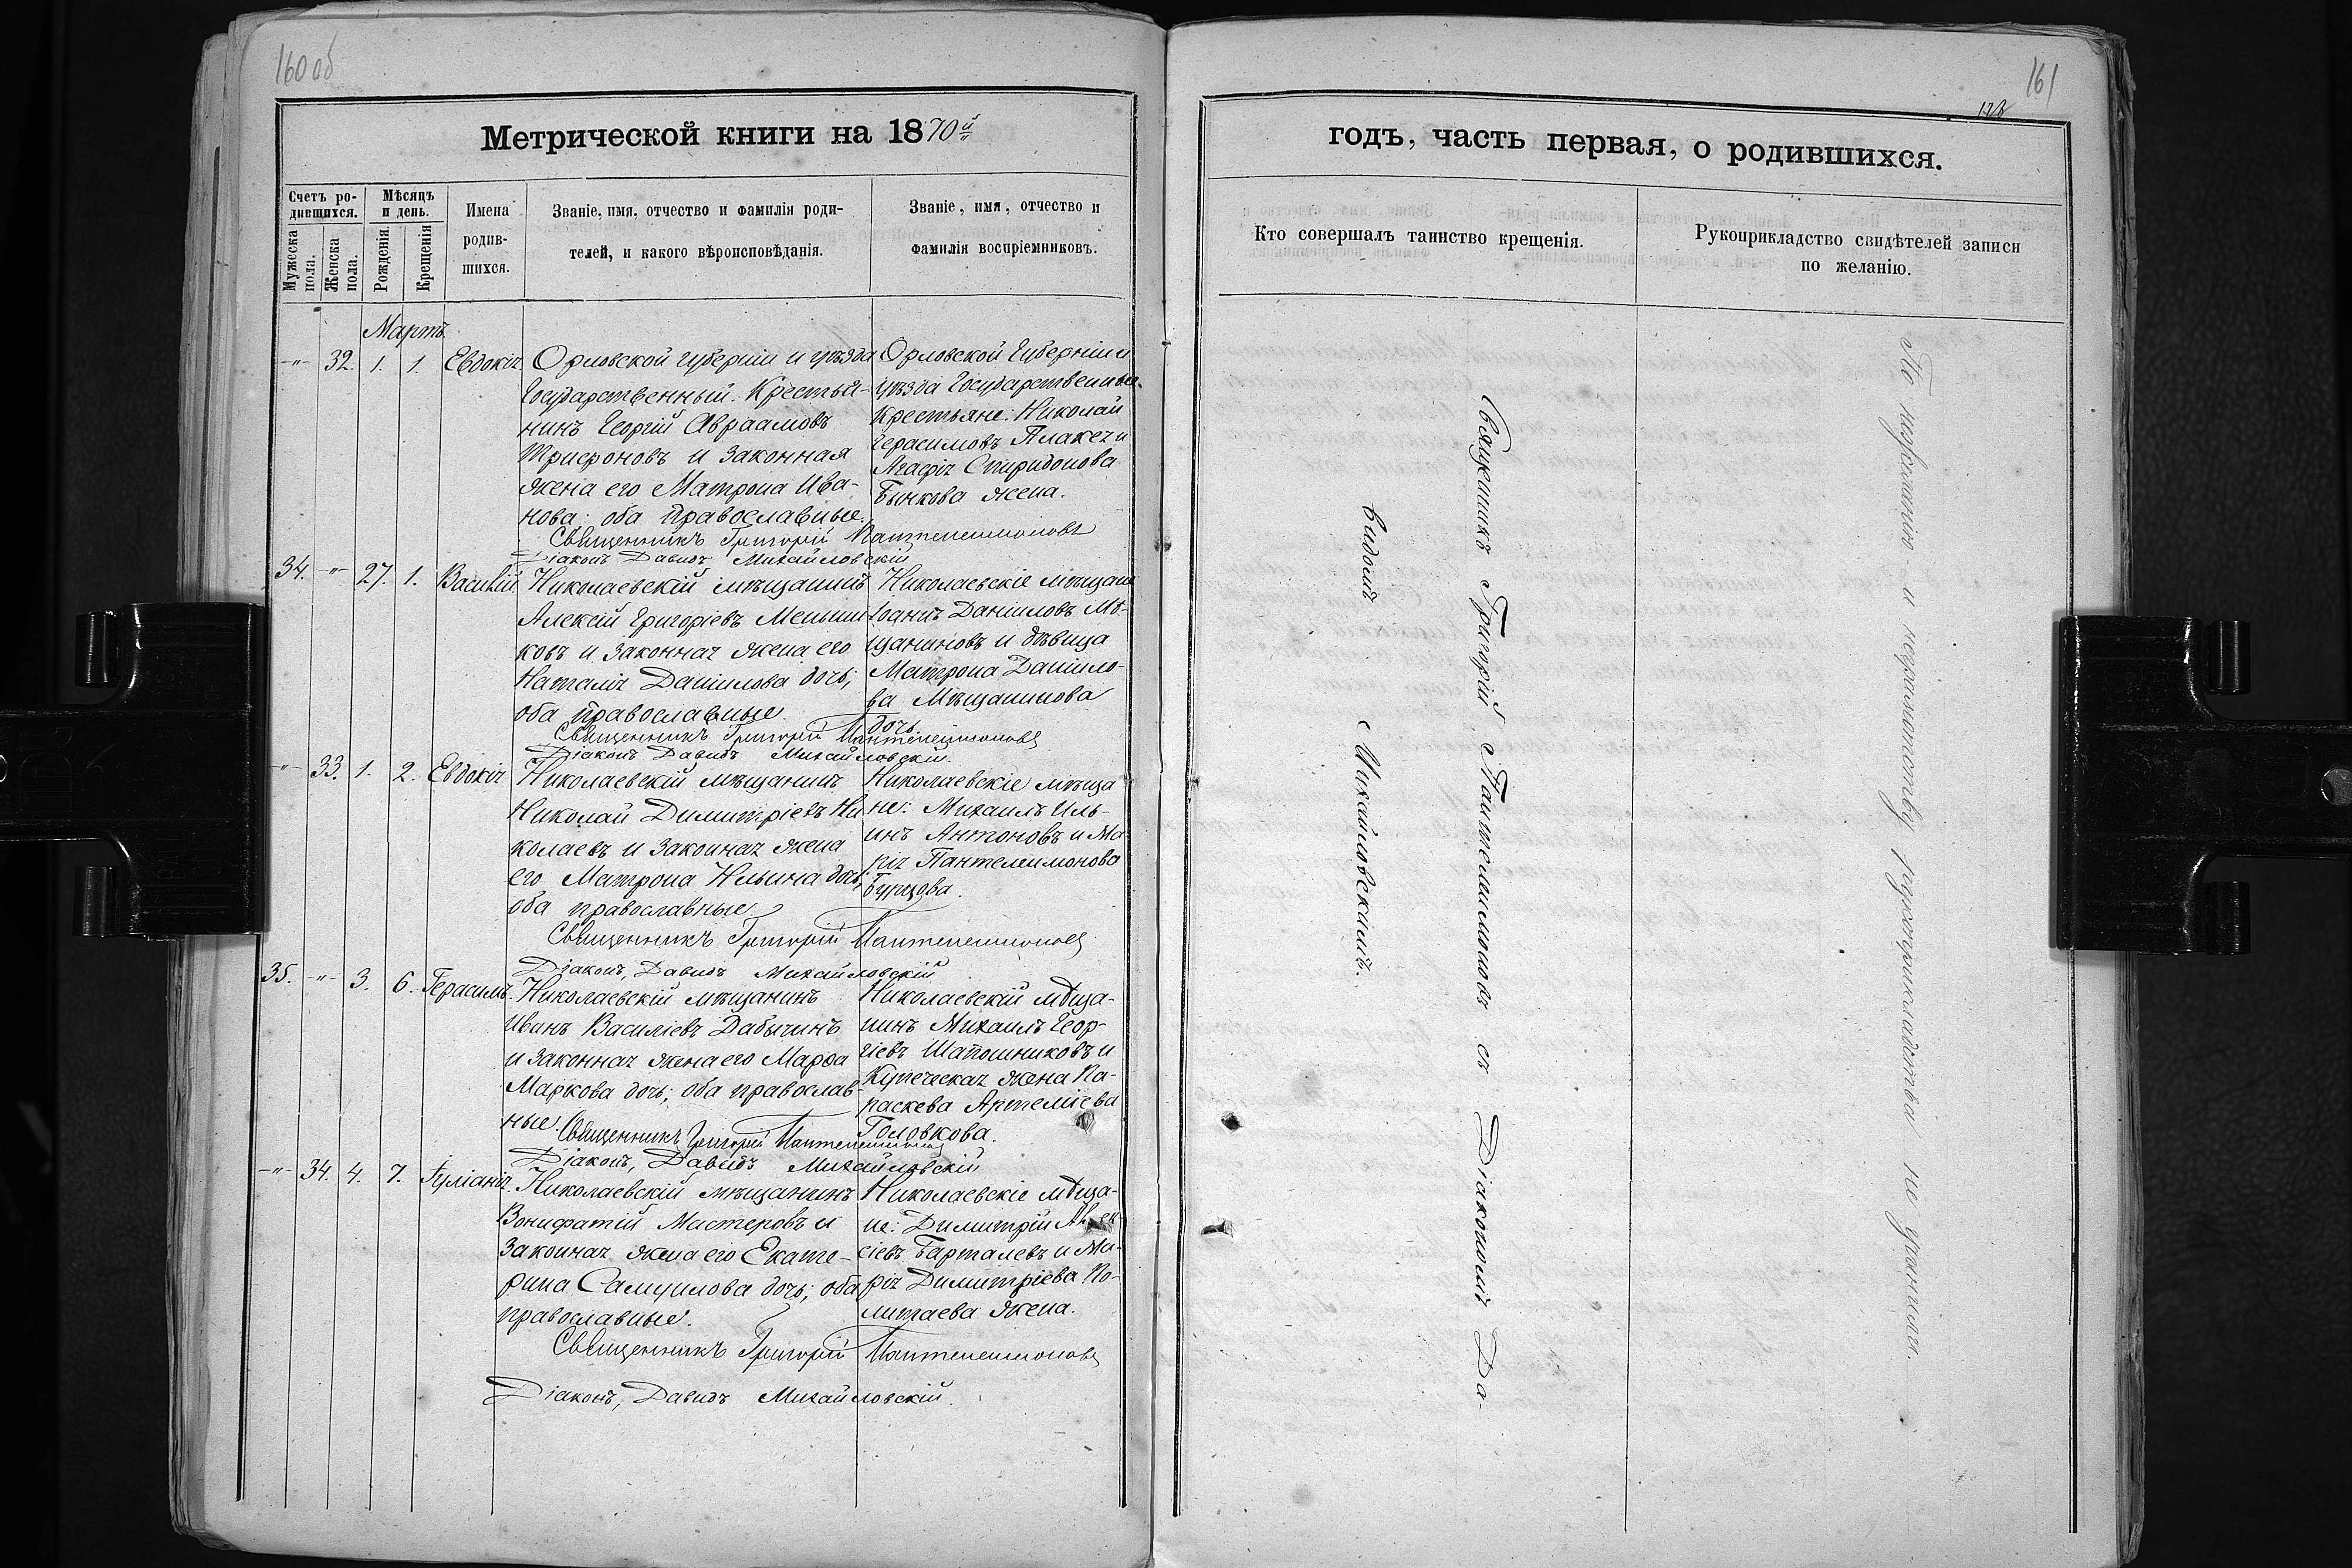 160 об
Метрической книги на 1870й
Счетъ родившихся.
Мужеска пола.
Женска пола.
Мѣсяцъ и день.
Рожденія.
Крещенія
Имена родившихся.
Званіе, имя, отчество и фамилія родителей, и какого вѣроисповѣданія.
Званіе, имя, отчество и фамилія воспріемниковъ.
Мартъ
-"- 32. 1. 1. Евдокія
Орловской губерніи и уѣзда
Государственный Крестья-
нинъ Георгій Авраамовъ
Трифоновъ и законная
жена его Матрона Ива-
нова; оба православные.
Орловской Губерніи и
уѣзда Государственные
Крестьяне: Николай
Герасимовъ и
Агафія Спиридонова
жена.
Священникъ Григорій Пантелеимоновъ
Діаконъ Давидъ Михайловскій
34. -"- 27. 1. Василій
Николаевскій мѣщанинъ
Алексій Григоріевъ Меньши-
ковъ и законная жена его
Наталія Данилова дочь;
оба православные.
Николаевскіе мѣщане
Іоаннъ Даниловъ Мѣ-
щаниновъ и дѣвица
Матрона Данило-
ва Мѣщанинова
дочь.
Священникъ Григорій Пантелеимоновъ
Діаконъ Давидъ Михайловскій.
-"- 33. 1. 2. Евдокія
Николаевскій мѣщанинъ
Николай Димитріевъ Ни-
колаевъ и законная жена
его Матрона Ильина дочь;
оба православные.
Николаевскіе мѣща-
не: Михаилъ Иль-
инъ Антоновъ и Ма-
рія Пантелеимонова
Бурцова.
Священникъ Григорій Пантелеимоновъ
Діаконъ, Давидъ Михайловскій
35. -"- 3. 6. Герасимъ.
Николаевскій мѣщанинъ
Иванъ Василіевъ Дабычинъ
и законная жена его Марфа
Маркова дочь; оба православ-
ные.
Николаевскій мѣща-
нинъ Михаилъ Геор-
гіевъ Шапошниковъ и
Купеческая жена Па-
раскева Артеміева
Головкова.
Священникъ Григорій Пантелеимоновъ
Діаконъ, Давидъ Михайловскій
-"- 34. 4. 7. Іуліанія.
Николаевскій мѣщанинъ
Вонифатій Мастеровъ и
законная жена его Екате-
рина Самуилова дочь; оба
православные.
Николаевскіе мѣща-
не: Димитрій Алек-
сіевъ Барталевъ и Ма-
рія Димитріева По-
литаева жена.
Священникъ Григорій Пантелеимоновъ
Діаконъ, Давидъ Михайловскій.
161
годъ, часть первая, о родившихся.
Кто совершалъ таинство крещенія.
Рукоприкладство свидѣтелей записи по желанію.
Священникъ Григорій Пантелеимоновъ съ Діакономъ Да-
видомъ Михайловскимъ.
По нежеланію и неграмотству рукоприкладства не учинили.